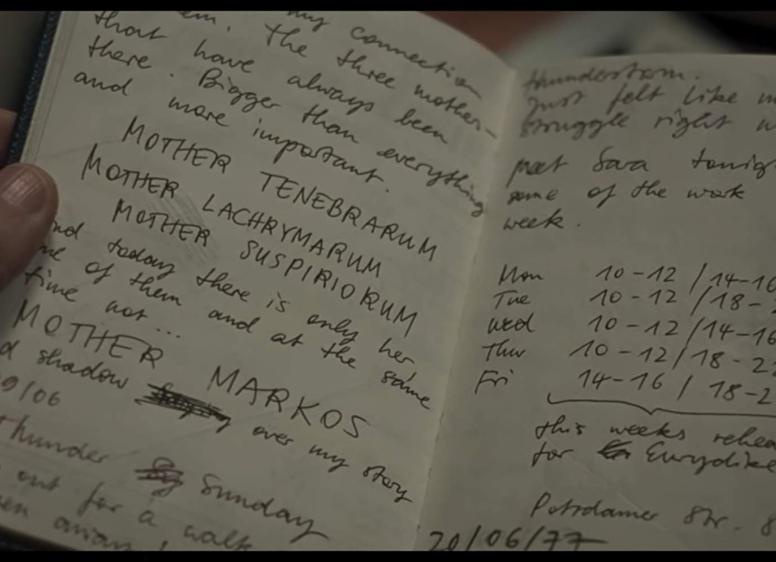 my connection
The three mother-
that have always been
there. Bigger than everything
and more important.
MOTHER TENEBRARUM
MOTHER LACHRYMARUM
MOTHER SUSPIRIORUM
today there is only her
of them and at the same
time not...
MOTHER MARKOS
shadow over my story
9/06
thunder Sunday
out for a walk
thunderstorm.
Just felt like
struggle right
meet Sara
some of the work
week.
Mon 10-12 / 14-16
Tue 10-12 / 18-
Wed 10-12 / 14-16
Thur 10-12 / 18-2
Fri 14-16 / 18-2
this weeks
for Eurydike
Potsdamer Str. 8
20/06/77